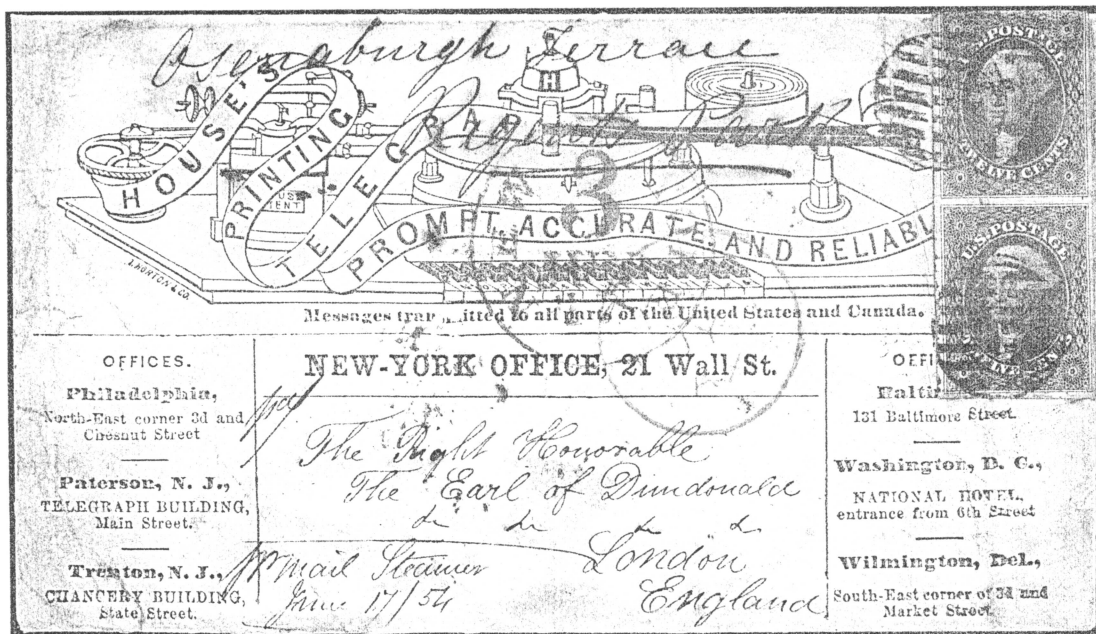 Osnaburgh Terrace
Regents Park
HOUSE'S
PRINTING
TELEGRAP
PROMPT, ACCURATE, AND RELIABL
H
3
U.S. POSTAGE
TWELVE CENTS.
U.S. POSTAGE
Messages transmitted to all parts of the United States and Canada.
NEW-YORK OFFICE, 21 Wall St.
OFFICES.
Philadelphia,
North-East corner 3d and
Chesnut Street
Paterson, N. J.,
TELEGRAPH BUILDING,
Main Street.
Trenton, N. J.,
CHANCERY BUILDING,
State Street.
The Right Honorable
The Earl of Dundonald
London
England
pr mail Steamer
June 17/54
131 Baltimore Street.
Washington, D. C.,
NATIONAL HOTEL,
entrance from 6th Street
Wilmington, Del.,
South-East corner of 3d and
Market Street.